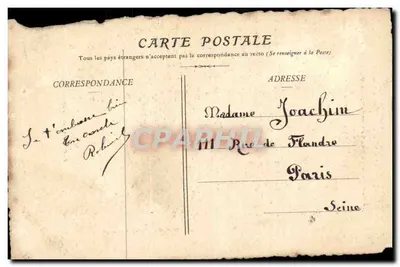 CARTE POSTALE
Tous les pays étrangers n'acceptent pas la correspondance au recto (Se renseigner à la Poste)
CORRESPONDANCE
ADRESSE
Je t'embrasse bien
Ton oncle
Madame Joachim
111 Rue de Flandre
Paris
Seine